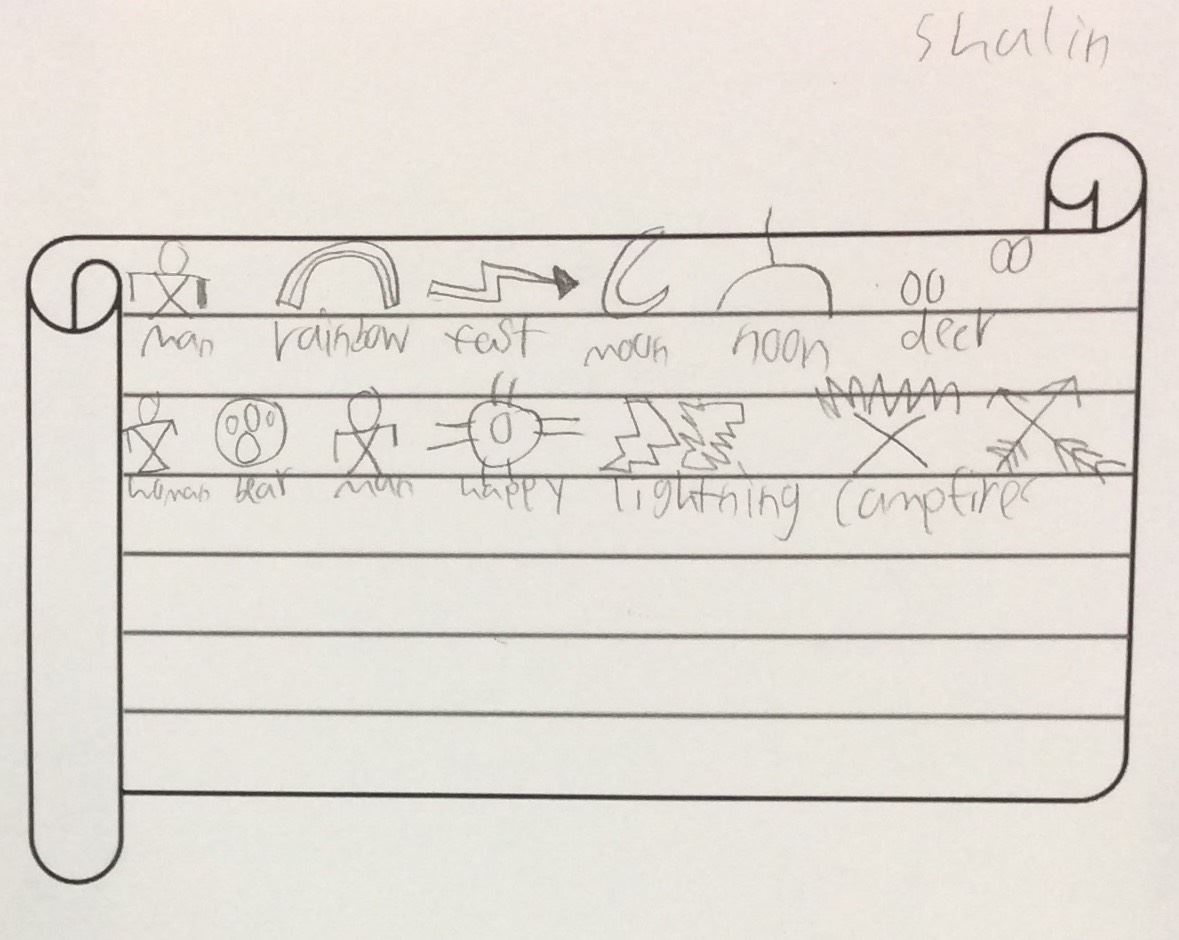 Shalin
man rainbow fast moon noon deer
woman bear man happy lightning campfire